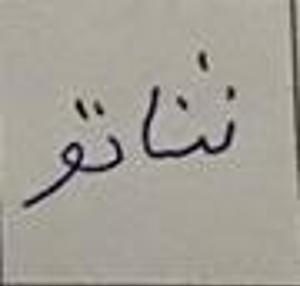 نناتو